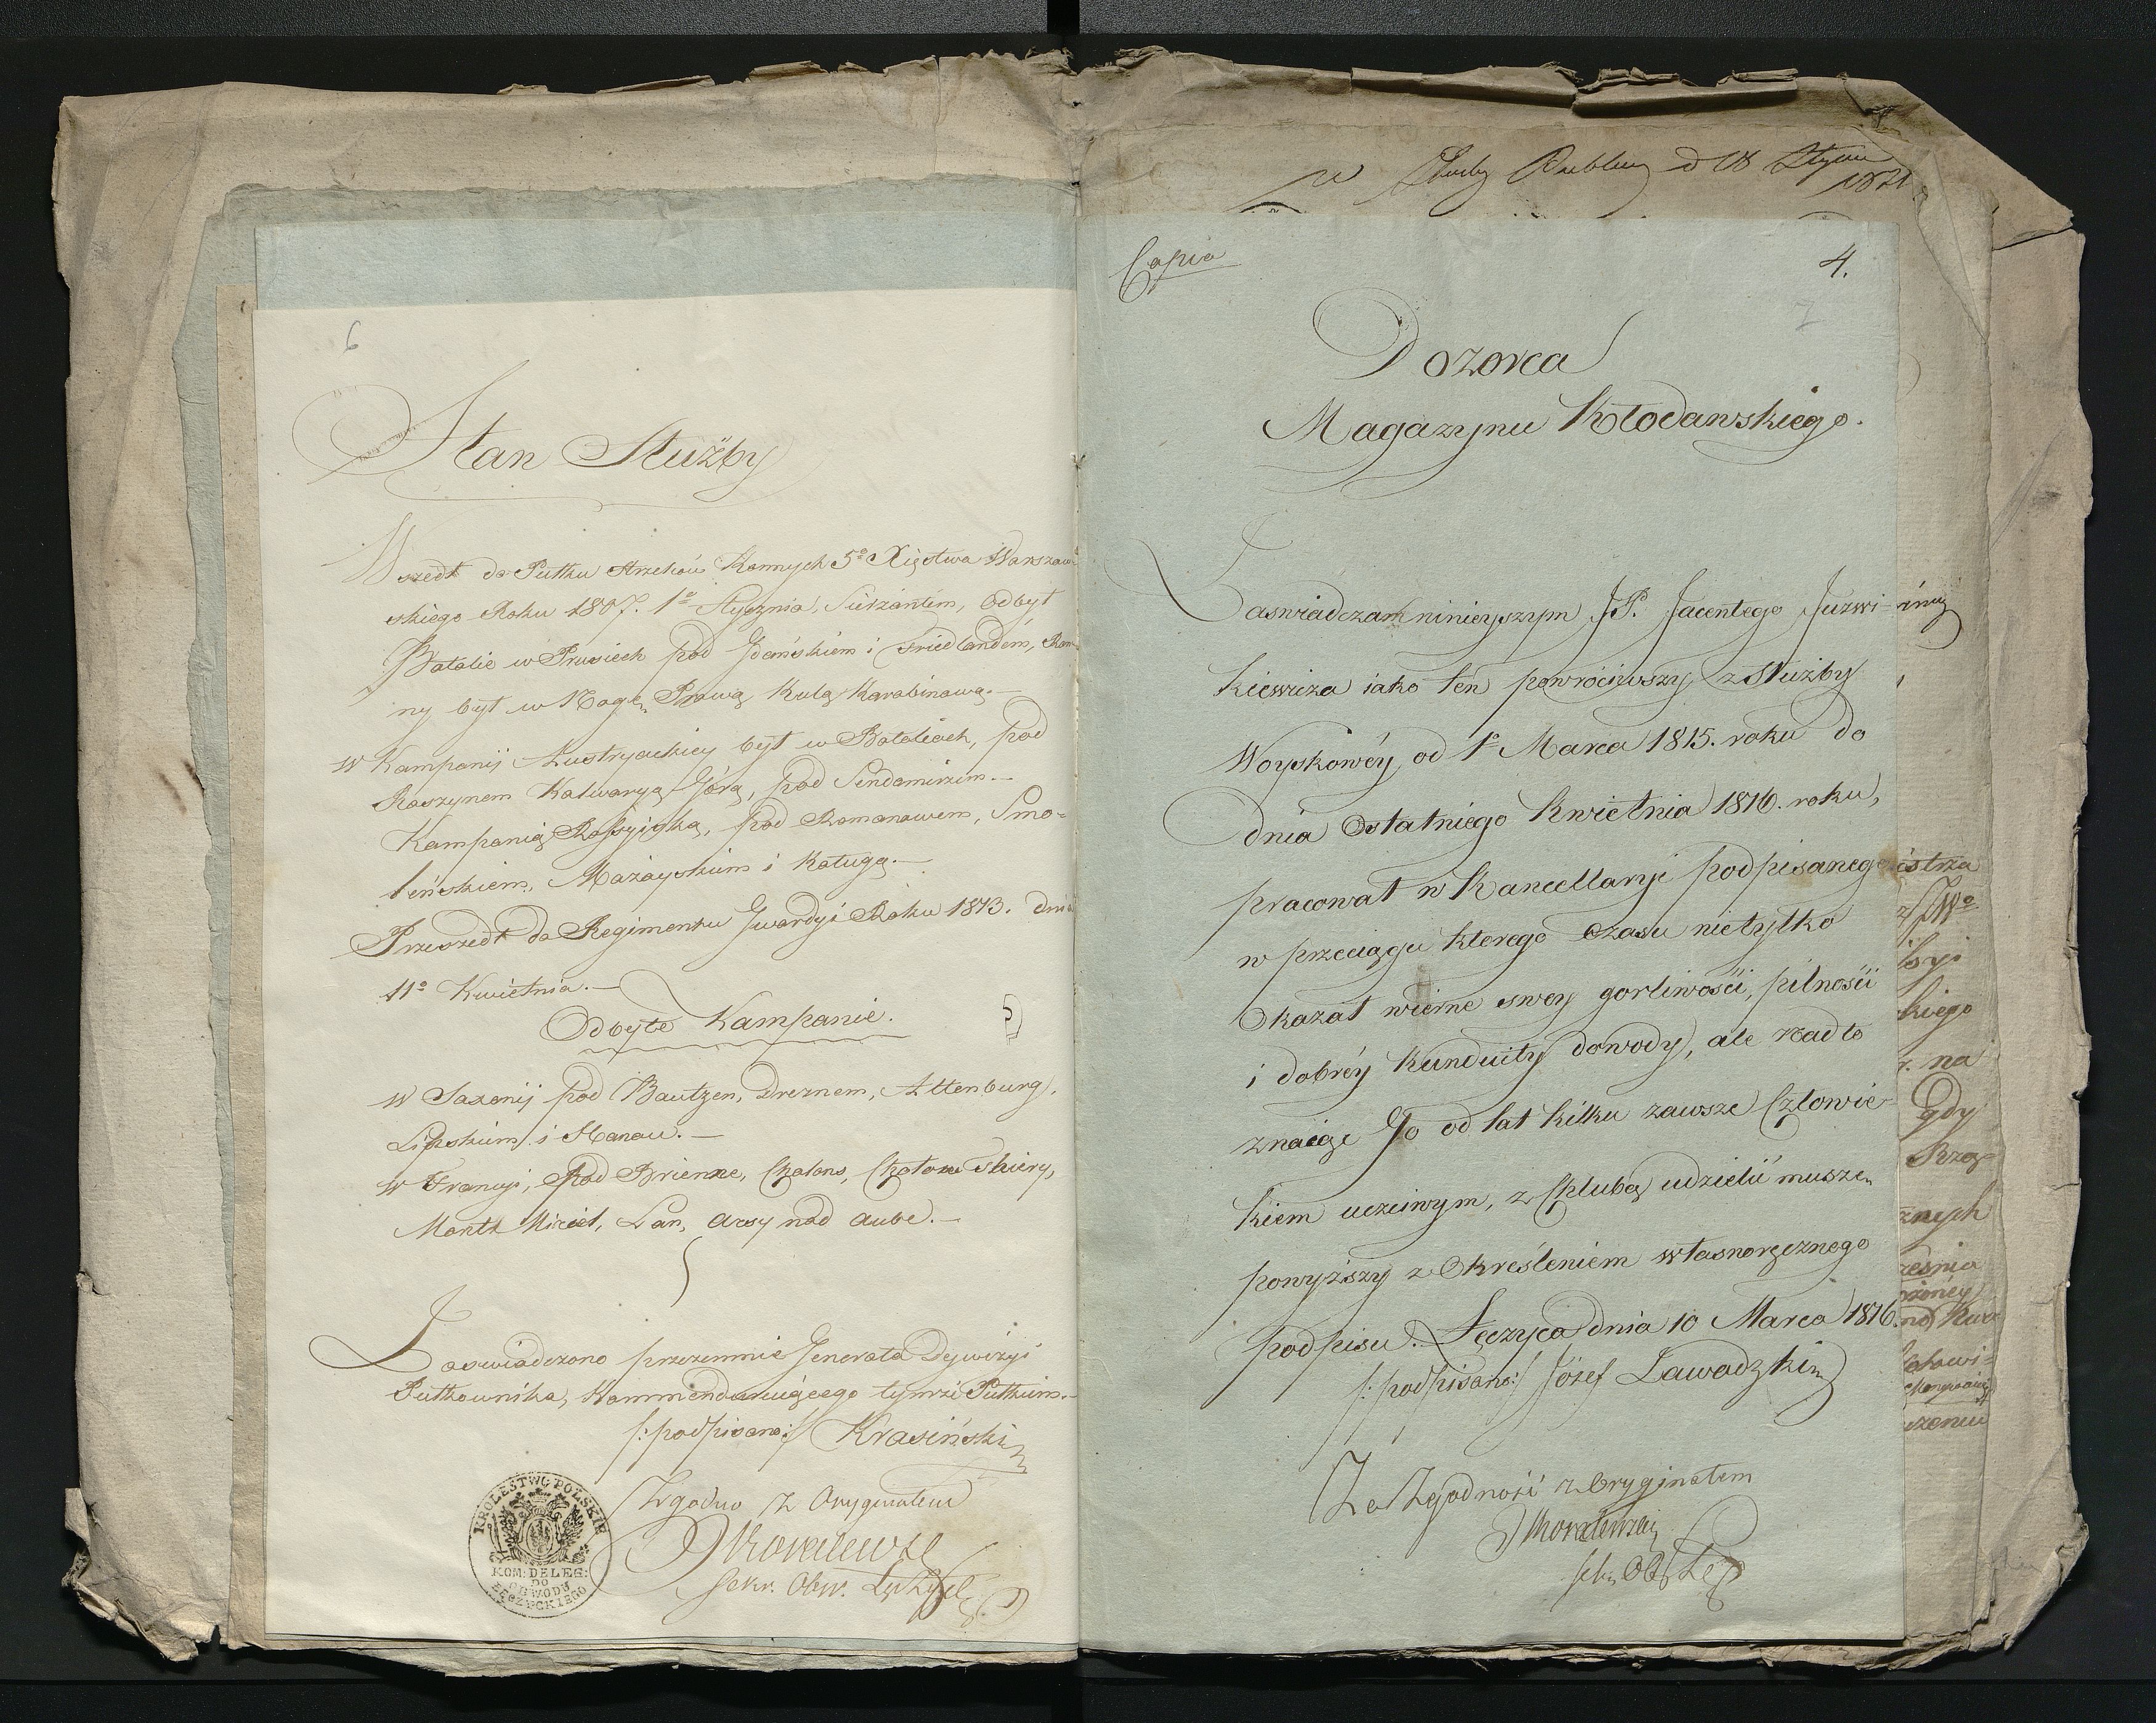 6
Stan Służby
Wszedł do Pułku Strzelców Konnych 5º Xięstwa Warszaw-
skiego Roku 1807. 1º Stycznia, Sierżantem, Odbył
Batalie w Prusiech pod Gdańskiem i Friedlandem, Ran-
ny był w Nogę Prawą Kulą Karabinową.—
w Kampanij Austryackiey był w Bataliach, pod
Raszynem Kalwaryą Górą, pod Sendomirzem.—
Kampanią Rossyiską, pod Romanowem, Smo-
leńskiem, Mażayskiem i Kaługą.—
Przeszedł do Regimentu Gwardyi Roku 1813. dnia
11º Kwietnia.—
Odbyte Kampanie.
w Saxonij pod Bautzen, Dreznem, Altenburg,
Lipskiem i Hanau.—
w Francyi, pod Brienne, Chalons, Chatou Thiery,
Month Miriel, Lan, Arsy nad Aube.—
Zaswiadczono przezemnie Generała Dywizyi
Pułkownika, Kommenderuiącego tymże Pułkiem.—
/:podpisano:/ Krasiński
Zgodno z Oryginałem
Kowalewski
Sekr. Obw. Łęczyc
KROLESTWO POLSKIE
KOM: DELEG:
DO
OBWODU
ŁĘCZYCKIEGO
Służby Publiczney d 18 Styczn
1821
Copia
4.
7
Dozorca
Magazynu Kłodawskiego.
Zaswiadczam ninieyszym JP. Jacentego Juzwi-
kiewicza iako ten powróciwszy z służby
Woyskowéy od 1º Marca 1815. roku do
dnia Ostatniego Kwietnia 1816. roku,
pracował w Kancellaryi podpisanego
w przeciągu którego czasu nietylko
Okazał wierne swey gorliwości, pilności
i dobréy Kunduity dowody, ale nadto
znaiąc Go od lat kilku zawsze Człowie-
kiem uczciwym, z Chlubą udzielić muszę
powyższy z Określeniem własnoręcznego
podpisu. Łęczyca dnia 10 Marca 1816.
/:podpisano:/ Józef Zawadzki
Za Zgodność z Oryginałem
Kowalewski
Sekr Obw Łęcz
istrza
kiego
na
gdy
znych